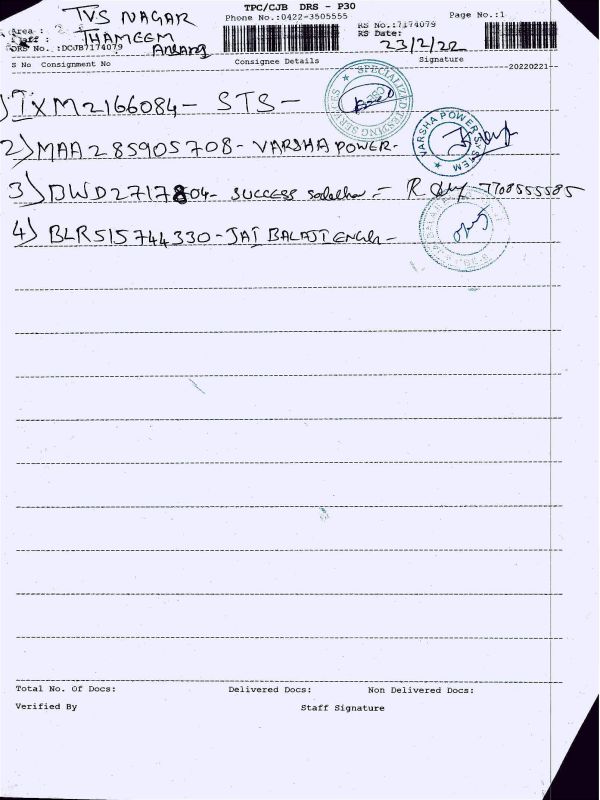 TPC/CJB DRS - P30
Area : TVS NAGAR
Phone No.:0422-3505555
Page No.:1
Staff : THAMEEM
RS No.:7174079
RS Date:
23/2/22
DRS No. :DCJB7174079
S No Consignment No
Consignee Details
Signature
20220221
1) TXM2166084- STS -
SPECIALIZED TESTING SERVICES
2) MAA285905708- VARSHA POWER-
VARSHA POWER SYSTEM
3) BWD2717804- SUCCESS - R 7708555585
4) BLR515744330-JAI BALAJI ENGG -
Total No. Of Docs:
Delivered Docs:
Non Delivered Docs:
Verified By
Staff Signature